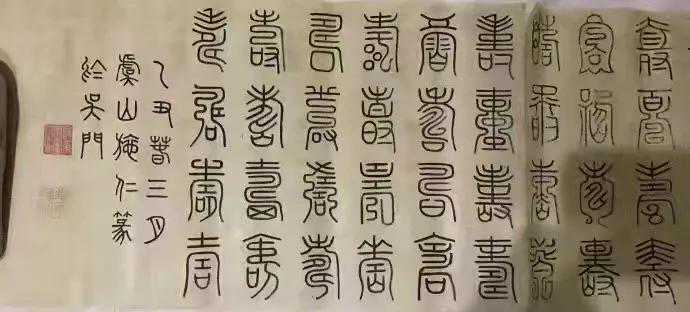 壽壽壽壽
壽壽壽壽
壽壽壽壽
壽壽壽壽
壽壽壽壽
壽壽壽壽
壽壽壽壽
壽壽壽壽
壽壽壽壽
乙丑春三月
虞山施仁篆
於吳門